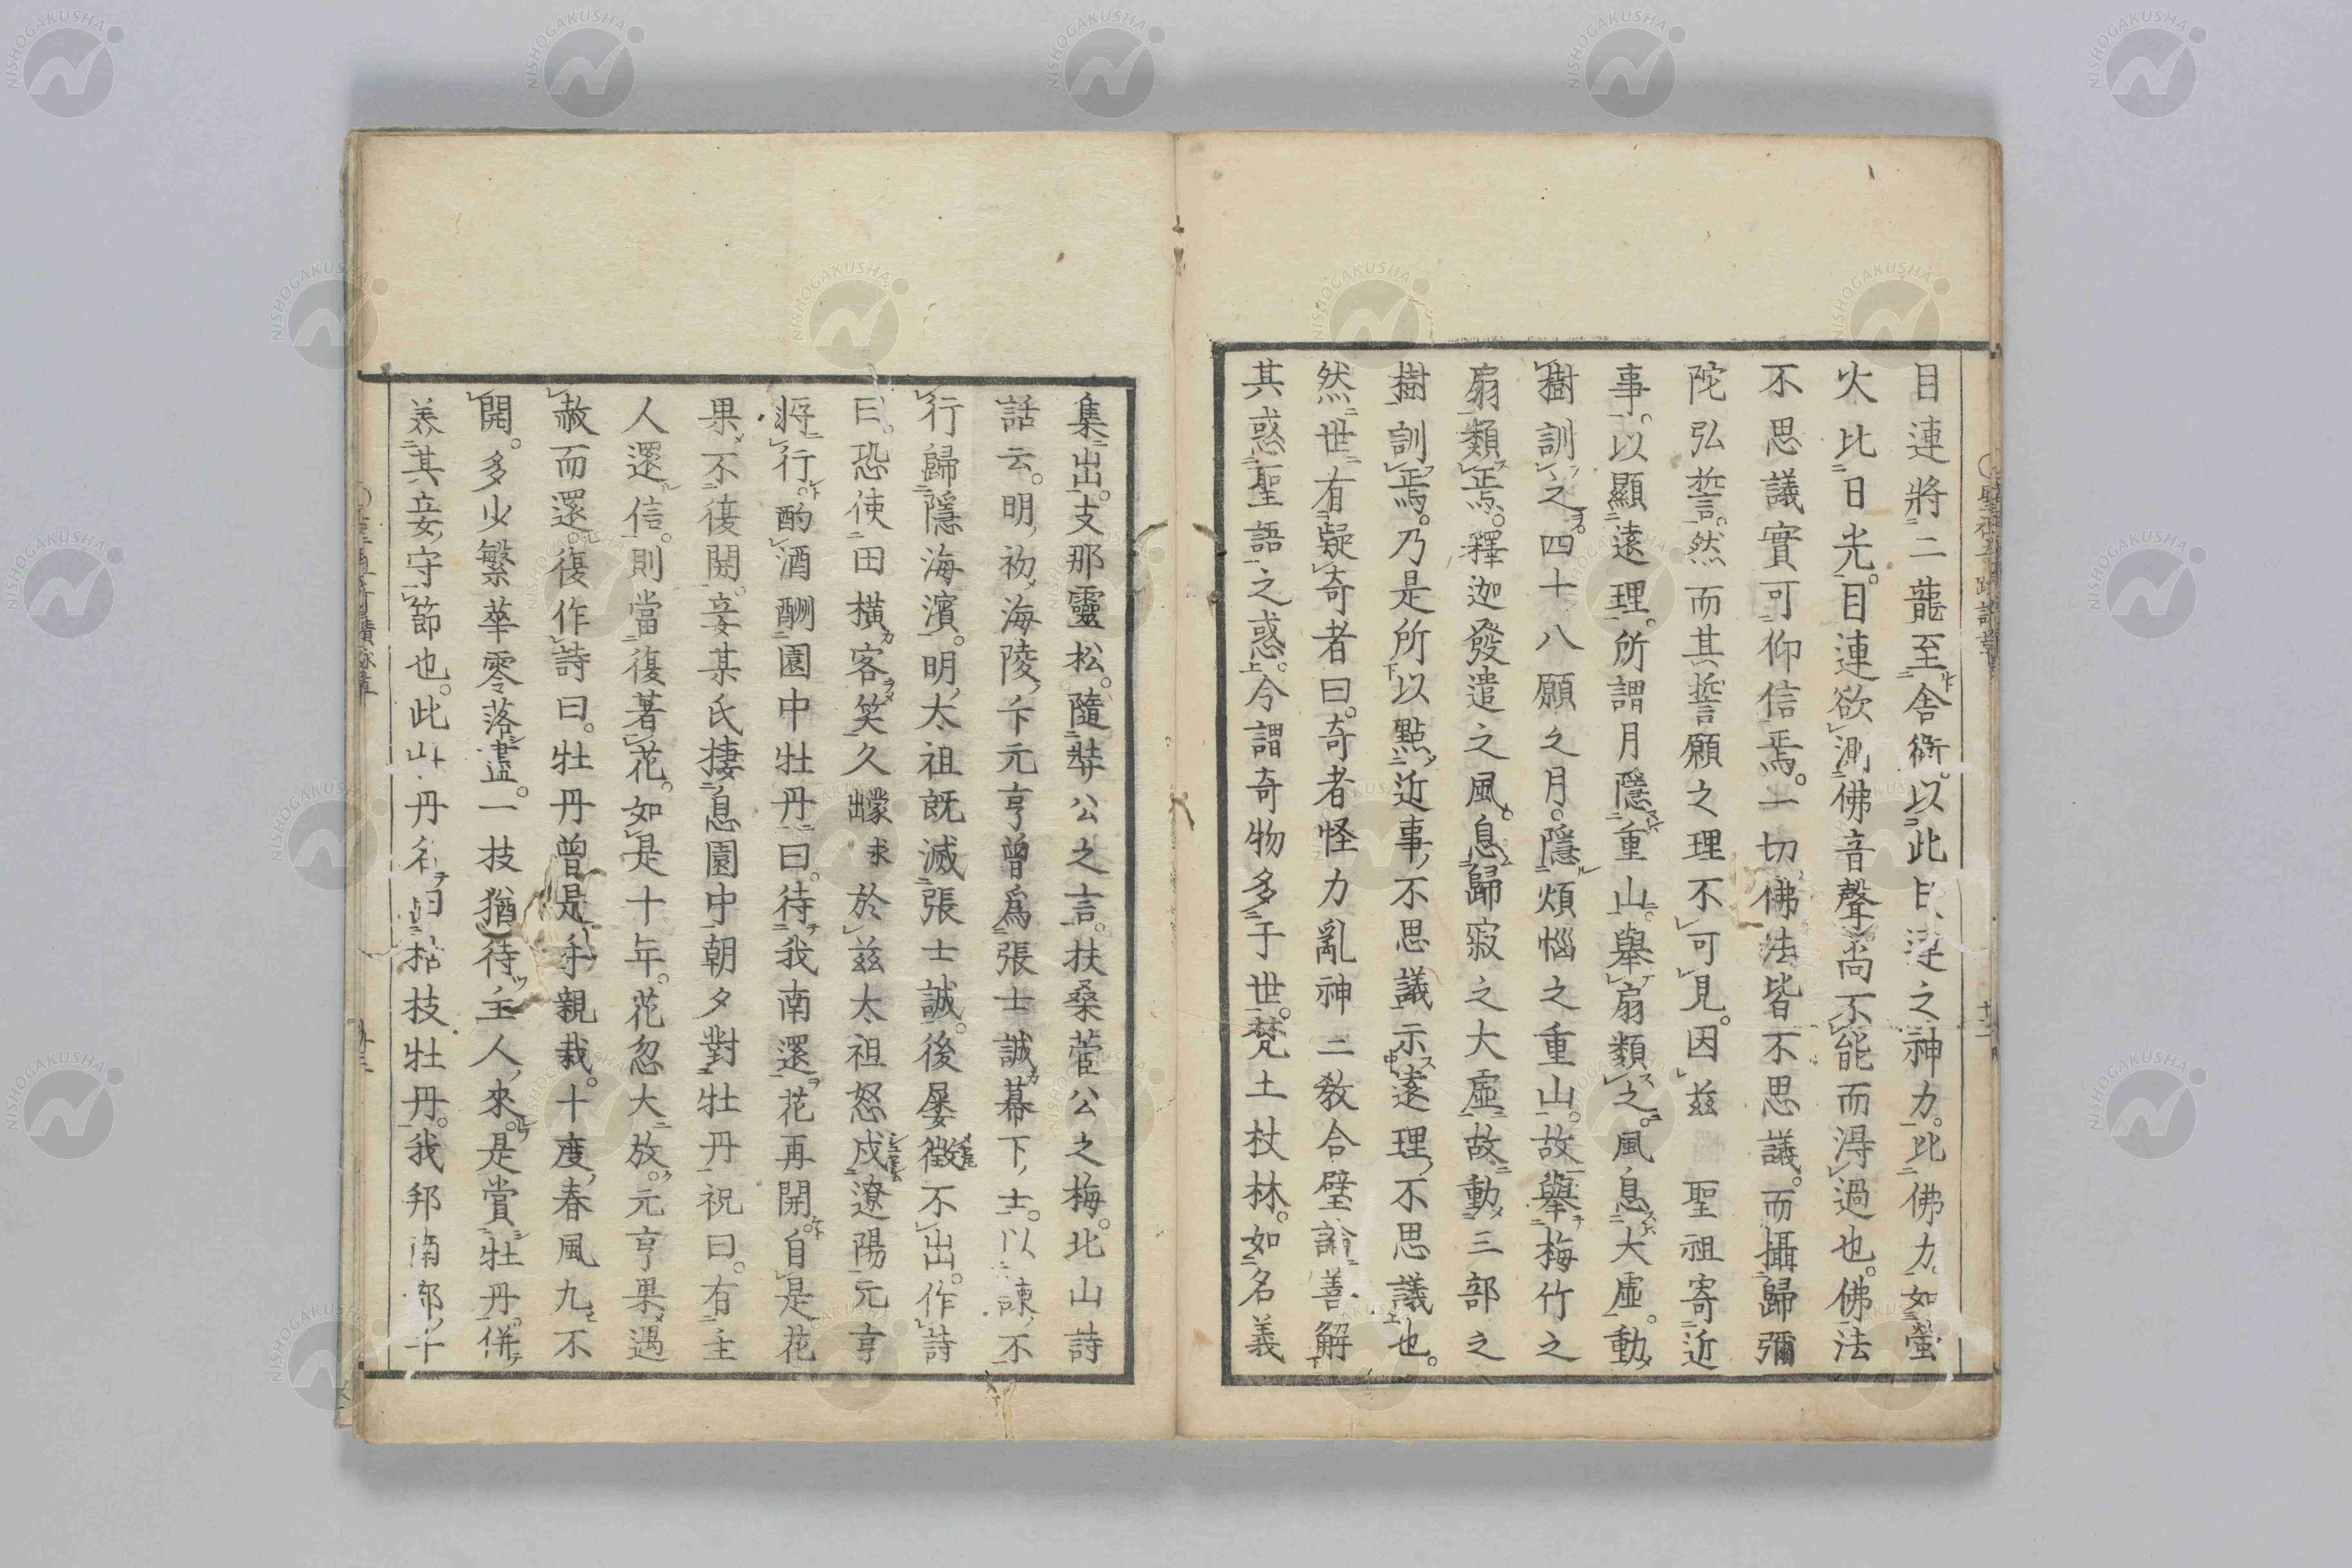 目連將二龍至舍衞。以此目連之神力。比佛力。如螢
火比日光。目連欲測佛音聲尚不能而得過也。佛法
不思議實可仰信焉。一切佛法皆不思議。而攝歸彌
陀弘誓。然而其誓願之理不可見。因茲 聖祖寄近
事。以顯遠理。所謂月隱重山舉扇類之。風息大虛。動
樹訓之。四十八願之月。隱煩惱之重山。故舉梅竹之
扇類焉。釋迦發遣之風。息歸寂之大虛。故動三部之
樹訓焉。乃是所以點近事、不思議示遠理、不思議也。
然世有疑奇者曰。奇者怪力亂神二教合壁論善解
其惑聖語之惑。今謂奇物多于世。梵土杖林。如名義
集出。支那靈松。隨弉公之言。扶桑菅公之梅。北山詩
話云。明、初海陵、卞元亨曾爲張士誠幕下、士。以諫、不
行歸隱海濱。明、太祖既滅張士誠。後屡徵不出。作詩
曰。恐使田橫客笑久矇求於茲太祖怒戍遼陽元亨
將行。酌酒酬園中牡丹曰。待我南還花再開。自是花
果不復開。妾某氏捿息園中朝夕對牡丹祝曰。有主
人還信。則當復著花。如是十年。花忽大放。元亨果遇
赦而還。復作詩曰。牡丹曾是手親栽。十度、春風九不
開。多少繁華零落盡。一技猶待主人、來。是賞牡丹。併
養其妾、守節也。此 丹 曰枯枝牡丹。我邦南部、
NISHOGAKUSHA